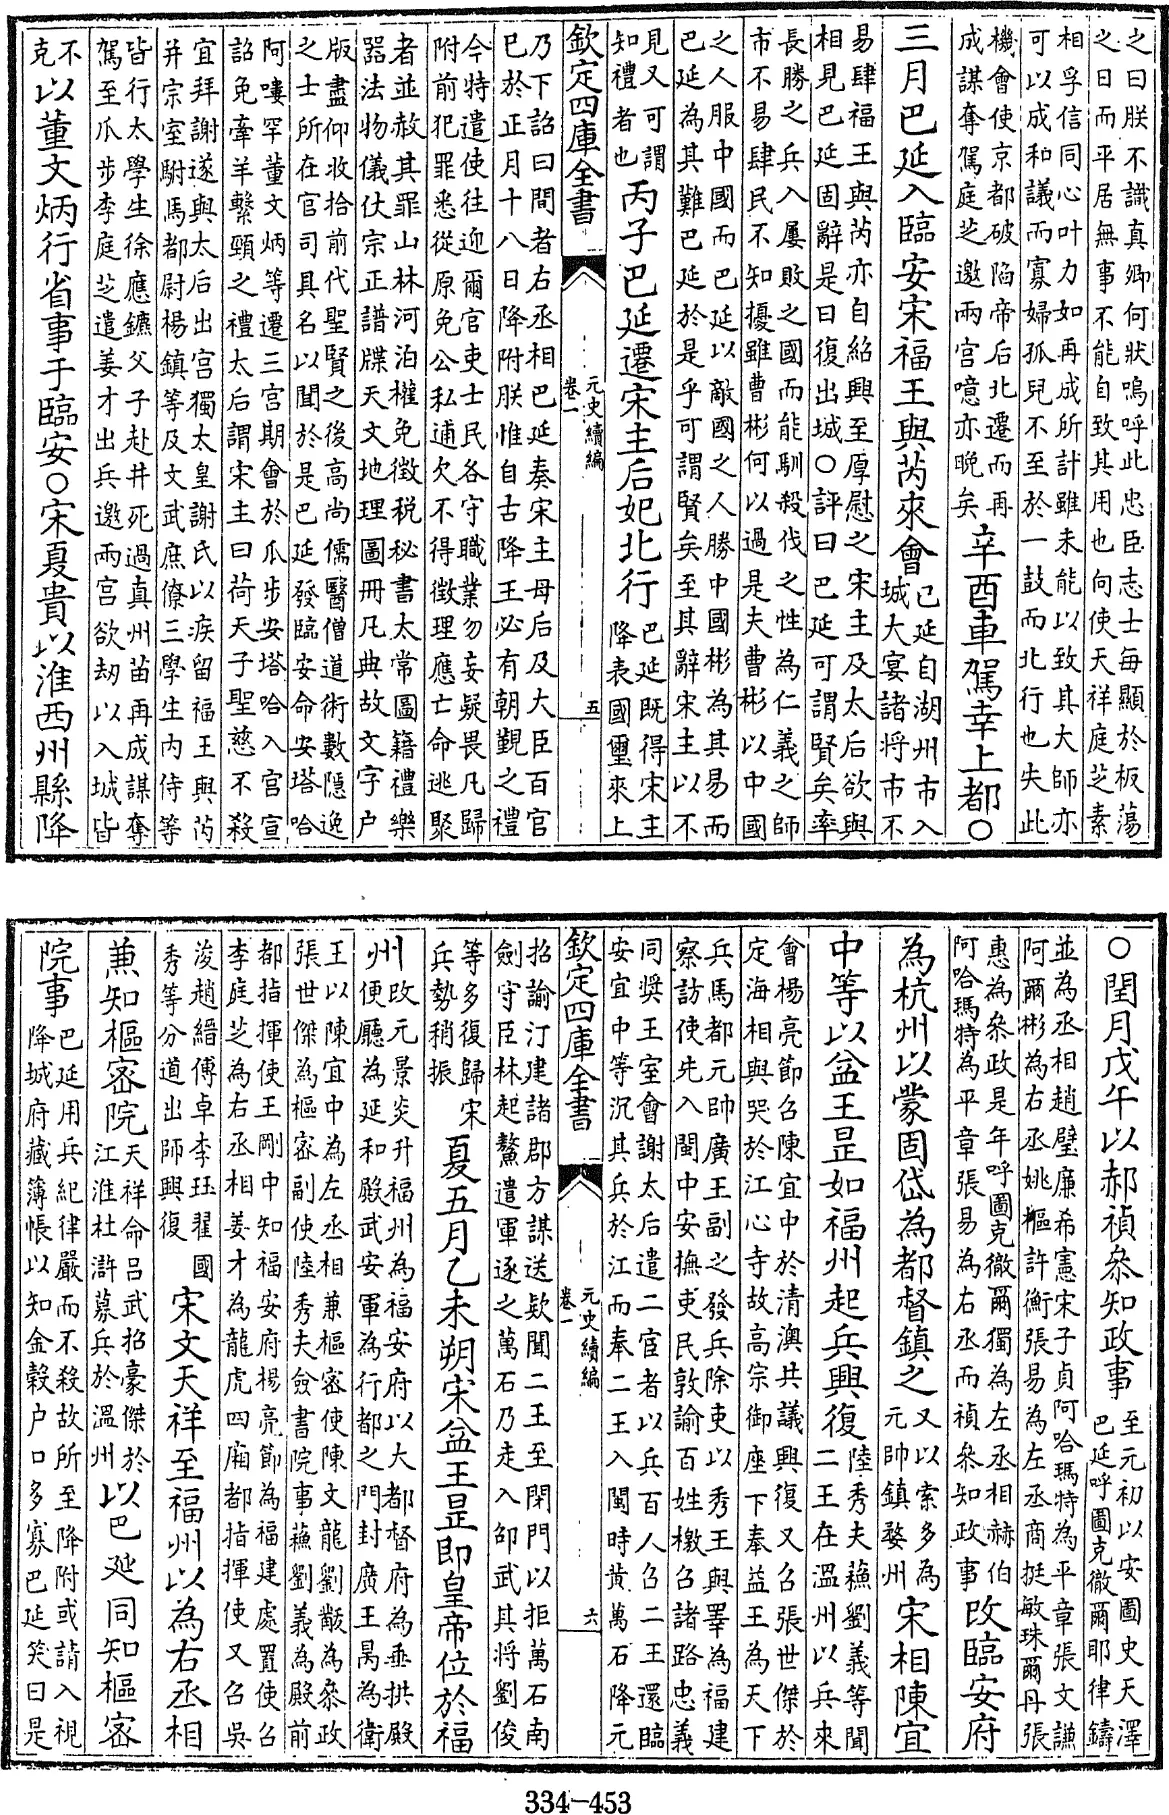 之曰朕不識真卿何狀嗚呼此忠臣志士每顯於板蕩
之日而平居無事不能自致其用也向使天祥庭芝素
相孚信同心叶力如再成所計雖未能以致其大師亦
可以成和議而寡婦孤兒不至於一鼓而北行也失此
機會使京都破陷帝后北遷而再
成謀奪駕庭芝邀兩宫噫亦晚矣
辛酉車駕幸上都○
三月巴延入臨安宋福王與芮來會
巴延自湖州市入
城大宴諸將市不
易肆福王與芮亦自紹興至厚慰之宋主及太后欲與
相見巴延固辭是日復出城○評曰巴延可謂賢矣率
長勝之兵入屢敗之國而能馴殺伐之性為仁義之師
市不易肆民不知擾雖曹彬何以過是夫曹彬以中國
之人服中國而巴延以敵國之人勝中國彬為其易而
巴延為其難巴延於是乎可謂賢矣至其辭宋主以不
見又可謂
知禮者也
丙子巴延遷宋主后妃北行
巴延既得宋主
降表國璽來上
欽定四庫全書
元史續編
卷一
五
乃下詔曰間者右丞相巴延奏宋主母后及大臣百官
已於正月十八日降附朕惟自古降王必有朝覲之禮
今特遣使往迎爾官吏士民各守職業勿妄疑畏凡歸
附前犯罪悉從原免公私逋欠不得徵理應亡命逃聚
者並赦其罪山林河泊權免徴税秘書太常圖籍禮樂
器法物儀仗宗正譜牒天文地理圖冊凡典故文字户
版盡仰收拾前代聖賢之後高尚儒醫僧道術數隱逸
之士所在官司具名以聞於是巴延發臨安命安塔哈
阿嘍罕董文炳等遷三宫期會於瓜步安塔哈入宫宣
詔免牽羊繫頸之禮太后謂宋主曰荷天子聖慈不殺
宜拜謝遂與太后出宫獨太皇謝氏以疾留福王與芮
并宗室駙馬都尉楊鎮等及文武庶僚三學生内侍等
皆行太學生徐應鑣父子赴井死過真州苗再成謀奪
駕至瓜步李庭芝遣姜才出兵邀兩宫欲刼以入城皆
不
克
以董文炳行省事于臨安○宋夏貴以淮西州縣降
○閏月戊午以郝禎叅知政事
至元初以安圖史天澤
巴延呼圖克徹爾耶律鑄
並為丞相趙璧廉希憲宋子貞阿哈瑪特為平章張文謙
阿爾彬為右丞姚樞許衡張易為左丞商挺敏珠爾丹張
惠為叅政是年呼圖克徹爾獨為左丞相赫伯
阿哈瑪特為平章張易為右丞而禎叅知政事
改臨安府
為杭州以蒙固岱為都督鎮之
又以索多為
元帥鎮婺州
宋相陳宜
中等以益王昰如福州起兵興復
陸秀夫蘓劉義等聞
二王在温州以兵來
會楊亮節召陳宜中於清澳共議興復又召張世傑於
定海相與哭於江心寺故高宗御座下奉益王為天下
兵馬都元帥廣王副之發兵除吏以秀王與睪為福建
察訪使先入閩中安撫吏民敦諭百姓檄召諸路忠義
同奨王室會謝太后遣二宦者以兵百人召二王還臨
安宜中等沉其兵於江而奉二王入閩時黄萬石降元
欽定四庫全書
元史續編
卷一
六
招諭汀建諸郡方謀送欵聞二王至閉門以拒萬石南
劍守臣林起鰲遣軍逐之萬石乃走入邵武其將劉俊
等多復歸宋
兵勢稍振
夏五月乙未朔宋益王昰即皇帝位於福
州
改元景炎升福州為福安府以大都督府為垂拱殿
便廳為延和殿武安軍為行都之門封廣王昺為衛
王以陳宜中為左丞相兼樞密使陳文龍劉黻為叅政
張世傑為樞密副使陸秀夫僉書院事蘓劉義為殿前
都指揮使王剛中知福安府楊亮節為福建處置使召
李庭芝為右丞相姜才為龍虎四廂都指揮使又召吳
浚趙縉傅卓李珏翟國
秀等分道出師興復
宋文天祥至福州以為右丞相
兼知樞密院
天祥命呂武招豪傑於
江淮杜滸募兵於温州
以巴延同知樞密
院事
巴延用兵紀律嚴而不殺故所至降附或請入視
降城府藏簿帳以知金穀户口多寡巴延笑曰是
334-453